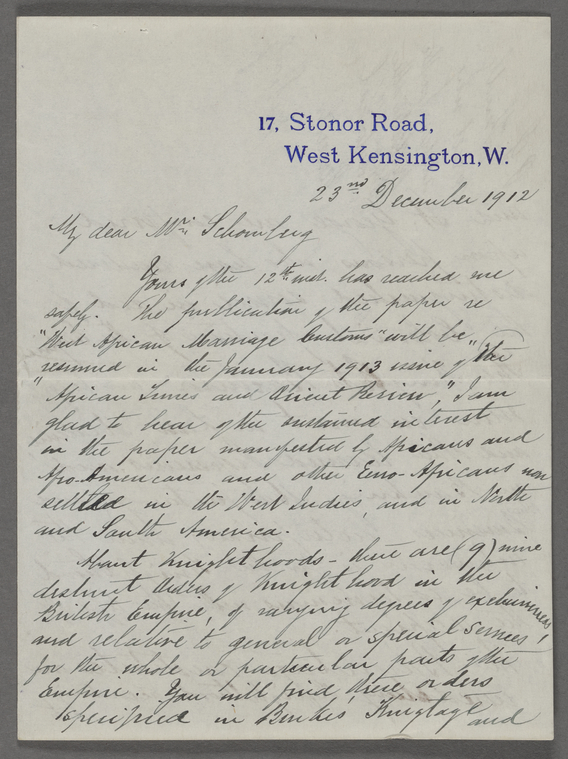 17, Stonor Road,
West Kensington, W.
23nd December 1912
My dear Mr. Schomburg
Yours of the 12th inst. has reached me
safely. The publication of the paper re
"West African Marriage Customs" will be
resumed in the January 1913 issue of "The
"African Times and Orient Review," I am
glad to hear of the sustained interest
in the paper manifested by Africans and
Afro-Americans and other Euro-Africans now
settled in the West Indies, and in North
and South America.
About Knighthoods - there are (9) nine
distinct Orders of Knighthood in the
British Empire, of varying degrees of exclusiveness
and relative to general or special services
for the whole or particular parts of the
Empire. You will find these orders
specified in Burke's Knigtage and